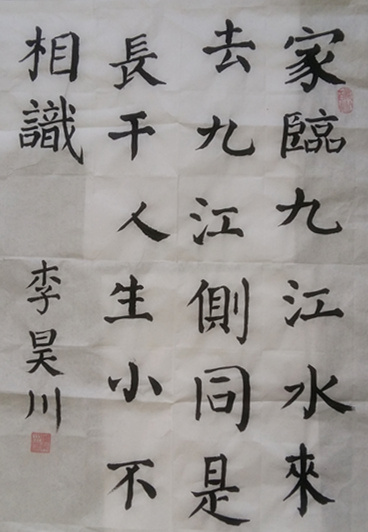 家臨九江水來
去九江側同是
長干人生小不
相識
李昊川